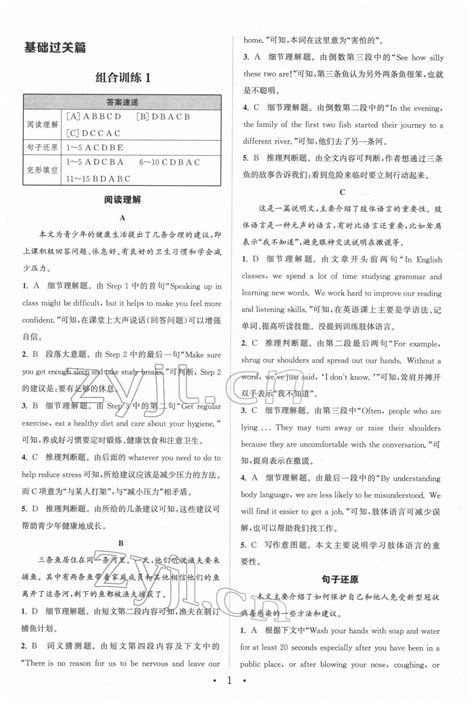 基础过关篇
组合训练 1
答案速递
阅读理解 [A] A B B C D [B] D B A C B
[C] D C C A C
句子还原 1~5 A C D B E
完形填空 1~5 A D C B A 6~10 C D B C A
11~15 B D A C B
阅读理解
A
本文为青少年的健康生活提出了几条合理的建议,即
上课积极回答问题、休息好、有良好的卫生习惯和学会减
少压力。
1. A 细节理解题。由 Step 1 中的首句“Speaking up in
class might be difficult, but it helps to make you feel more
confident.”可知,在课堂上大声说话(回答问题)可以增强
自信。
2. B 段落大意题。由 Step 2 中的最后一句“Make sure
you get enough sleep and take study breaks.”可判断,Step
2 的建议是:要有足够的休息。
3. B 细节理解题。由 Step 3 中的第二句“Get regular
exercise, eat a healthy diet and care about your hygiene.”
可知,养成好习惯要定时锻炼、健康饮食和注意卫生。
4. C 推理判断题。由最后的建议“do whatever you need
to help reduce stress”可知,所给建议应该是减少压力的方法。
而 C 项意为“与某人打架”,与减少压力矛盾。
5. D 推理判断题。由所给的几条建议内容可知,建议可
帮助青少年健康地成长。
B
三条鱼居住在同一条河里。一天,他们谈论渔夫要来
捕鱼。其中两条鱼带着家庭成员和其他相信他们的鱼
离开了,剩下的鱼都被渔夫捕走了。
1. D 细节理解题。由短文第二段内容可知,渔夫在制订
捕鱼计划。
2. B 词义猜测题。由短文第四段内容及下文中的
“There is no reason for us to be nervous and leave our
home.”可知,本词在这里意为“害怕的”。
3. A 细节理解题。由倒数第三段中的“See how silly
these two are!”可知,第三条鱼认为另外两条鱼很笨。
4. C 细节理解题。由倒数第二段中的“In the evening,
the family of the first two fish started their journey to a
different river.”可知,他们去了另一条河。
5. B 推理判断题。由全文内容可判断,作者想通过三条
鱼的故事告诉我们:看到危险来临时要立刻行动起来。
C
这是一篇说明文,主要介绍了肢体语言的重要性。肢
体语言是一种无声的语言,有时比语言更重要,如耸肩表
示“我不知道”,避免眼神交流说明在撒谎等。
1. D 细节理解题。由文章开头前两句“In English
classes, we spend a lot of time studying grammar and
learning new words. We work hard to improve our reading
and listening skills.”可知,在英语课上主要是学语法、词汇,
提高听读技能,没有学习训练肢体语言。
2. C 推理判断题。由第二段最后两句“For example,
shrug our shoulders and spread out our hands. Without a
word, we've just said, ‘I don't know.’”可知,耸肩并摊开
双手表示“我不知道”。
3. C 细节理解题。由第三段中的“Often, people who are
lying ... They may turn away or raise their shoulders
because they are uncomfortable with the conversation.”可
知,提肩表示在撒谎。
4. A 细节理解题。由最后一段中的“By understanding
body language, we are less likely to be misunderstood. We
will even be more likely to get a job.”可知,肢体语言可减
少误解。
5. C 写作意图题。本文主要说明学习肢体语言的重要性。
句子还原
本文主要介绍了如何保护自己和他人免受新型冠状
病毒感染的一些方法和建议。
1. A 根据下文中“Wash your hands with soap and water
for at least 20 seconds especially after you have been in a
public place, or after blowing your nose, coughing, or
• 1 •
zyjl.cn
zyjl.cn